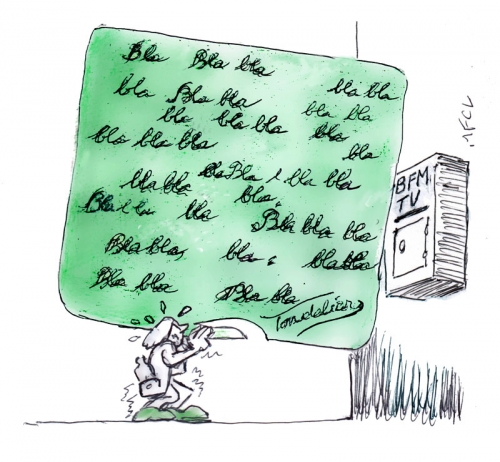 Bla Bla bla
bla bla
bla Bla bla
bla bla
bla bla bla
bla
bla bla bla
bla
bla bla
bla Bla bla bla
bla
Bla bla bla
Bla bla bla
Bla bla, bla bla bla
Bla bla
Bla bla
BFM
TV